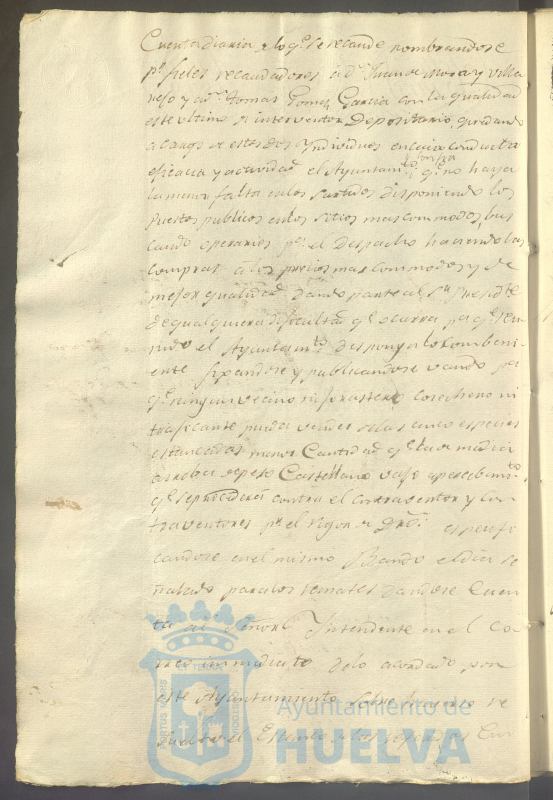 Cuenta diaria de lo qe. se recaude nombrandose
pr. fieles recaudadores á Dn. Juan de Mora y Villa
 y a Dn. Tomas Gomez Garcia con la qualidad
este ultimo de interventor Depositario, quedando
a cargo de estos dos Yndividuos en cuia conducta
eficacia y actividad el Ayuntamto. confia qe. no haya
la menor falta en los surtidos disponiendo los
Puestos publicos en los sitios mas commodos, bus
cando operarios pa. el Despacho haciendo las
compras a los precios mas commodos y de
mejor qualidad dando parte al Sr. Presidte.
de qualquiera dificultad qe. ocurra pa. qe.
el Ayuntamto. disponga lo combeni
ente fixandose y publicandose vando pa.
qe. ningun vecino ni forastero cosechero ni
traficante pueda vender de las cinco especies
estancadas menor Cantidad qe. la de media
arroba de peso Castellano vajo apercebimto.
qe. se procederá contra el contraventor y con
traventores pr. el rigor de Dro. especifi
candose en el mismo Bando el dia se
ñalado para los remates dandose Cuen
ta al Señor Intendente en el co
rreo inmediato de lo acordado por
este Ayuntamiento
Ayuntamiento de
HUELVA
PORTUS MARIS
CUSTODIA